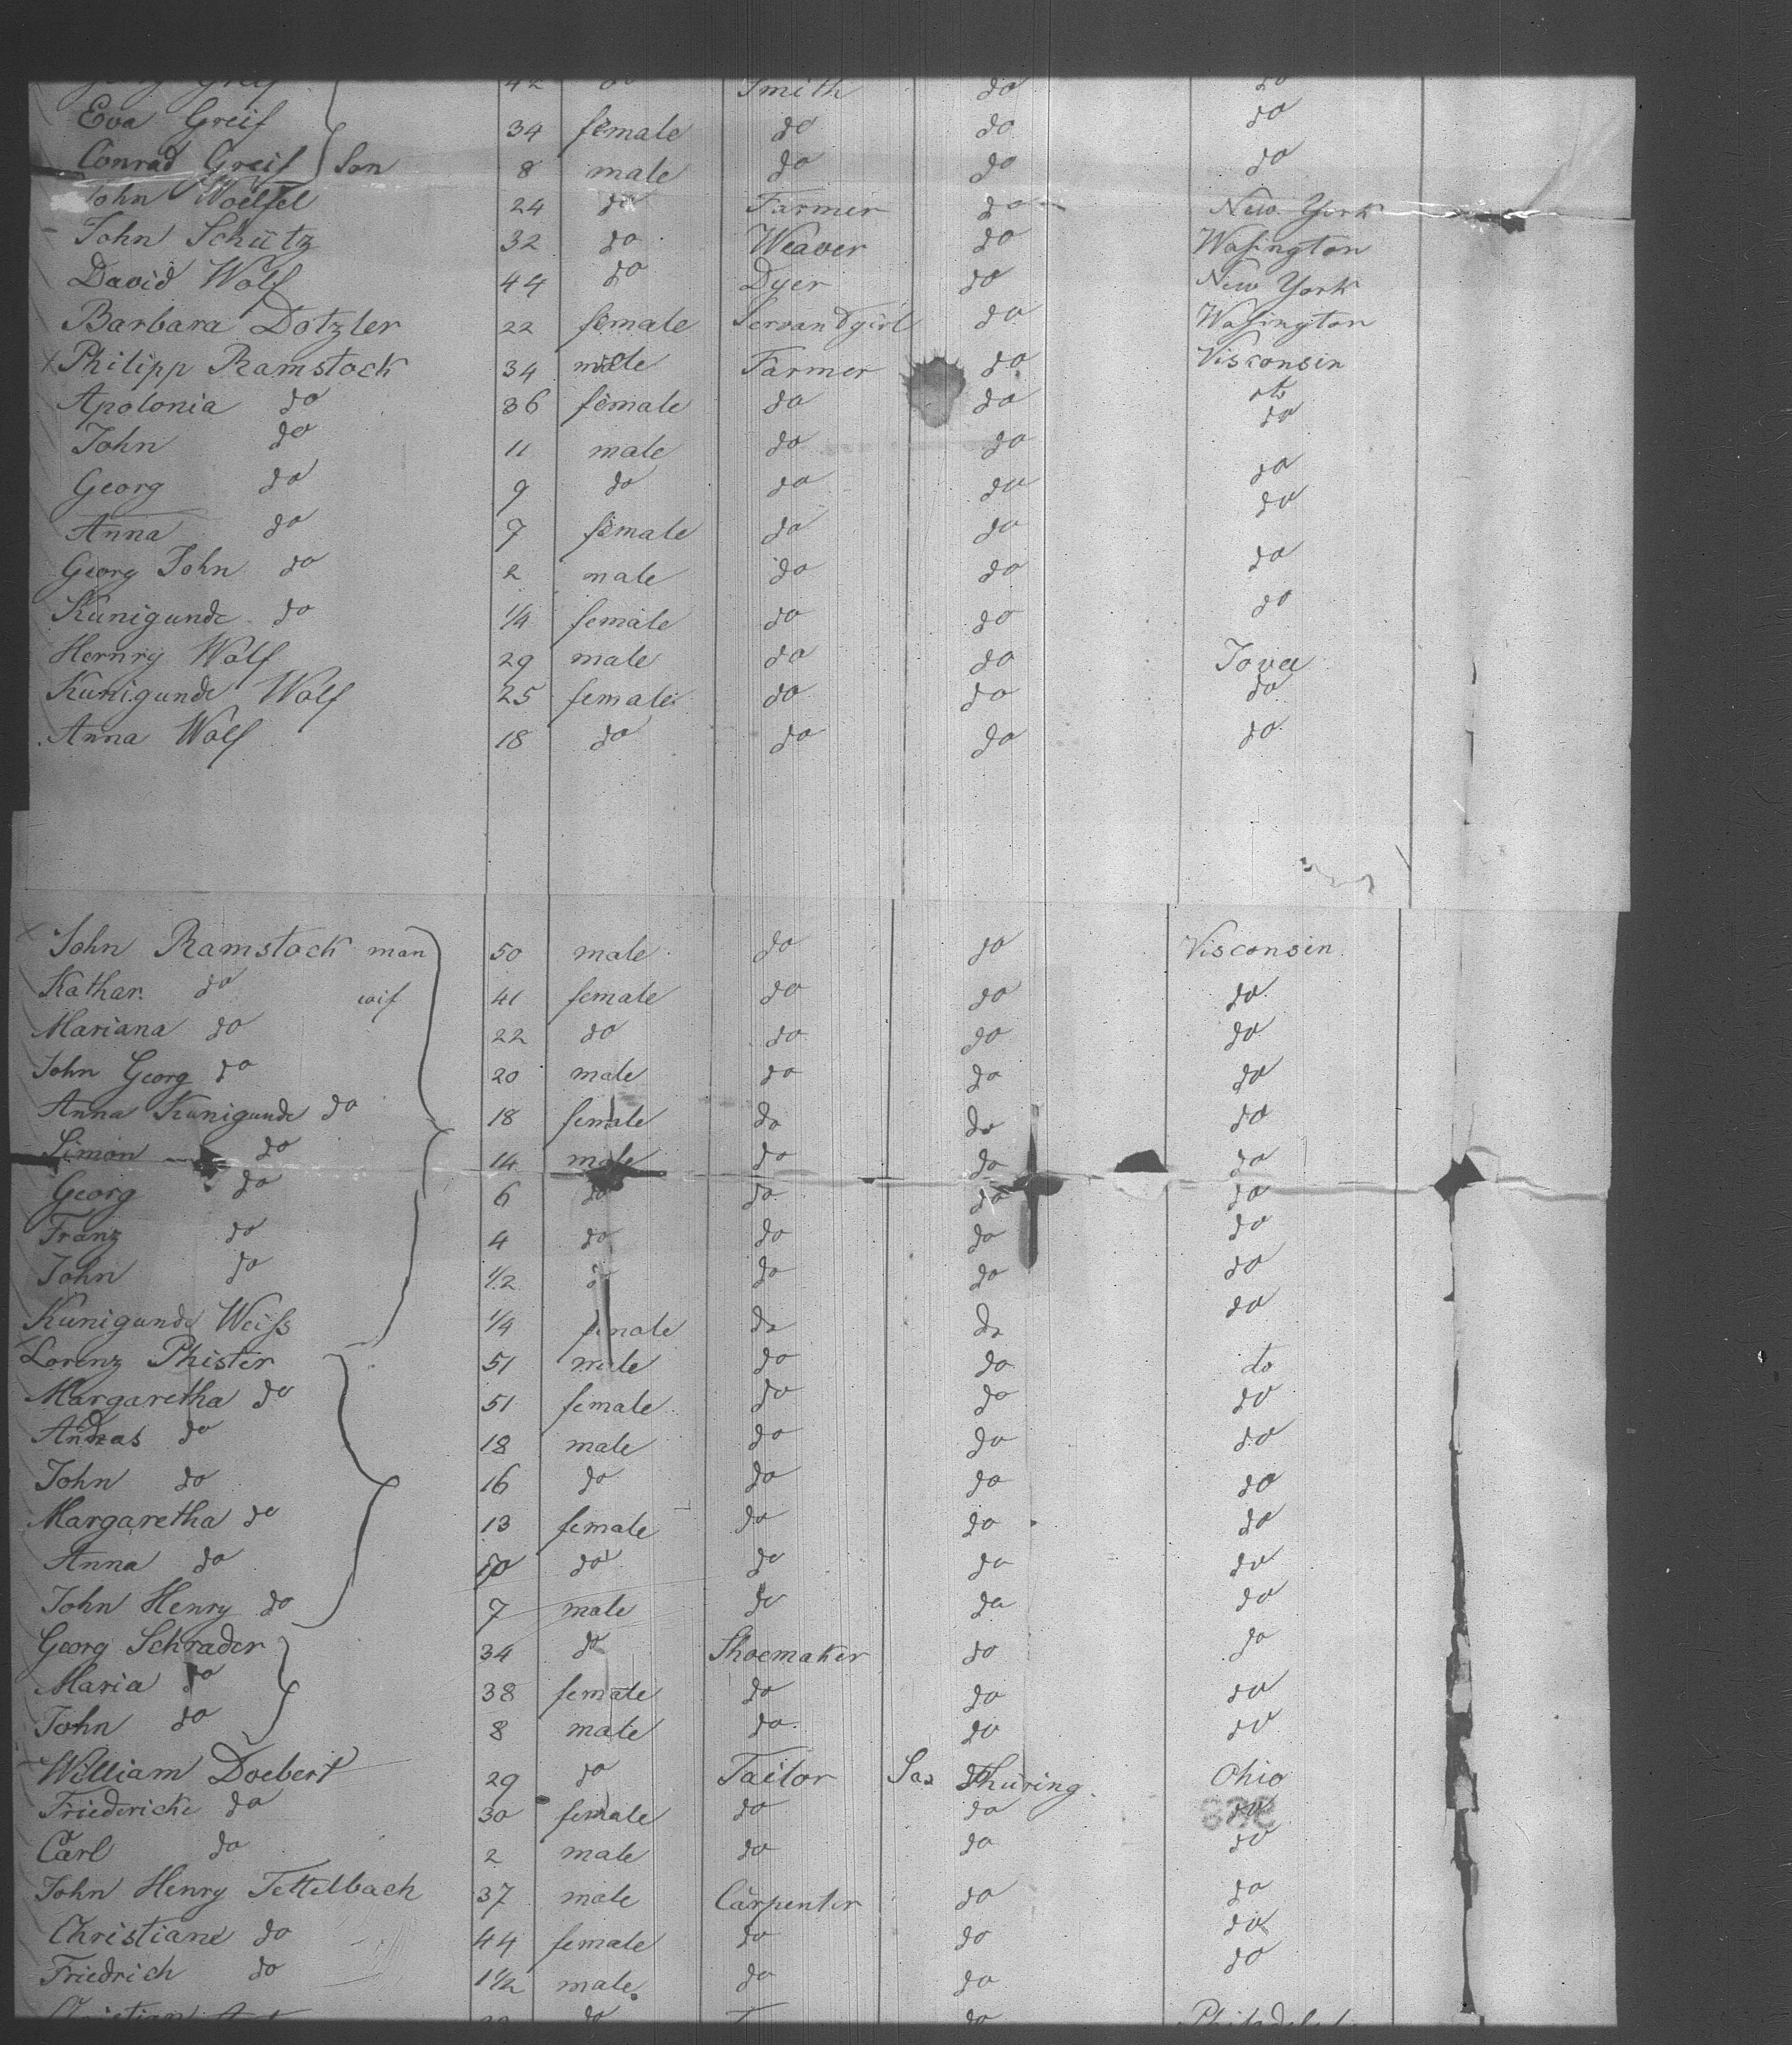 Georg Greif 42 do Smith do do
Eva Greif 34 female do do do
Conrad Greif Son 8 male do do do
John Woelfel 24 do Farmer do New York
John Schütz 32 do Weaver do Wasington
David Wolf 44 do Dyer do New York
Barbara Dotzler 22 female Servandgirl do Wasington
Philipp Ramstock 34 male Farmer do Visconsin
Apolonia do 36 female do do do
John do 11 male do do do
Georg do 9 do do do do
Anna do 7 female do do do
Georg John do 2 male do do do
Kunigunde do 1/4 female do do do
Hernry Wolf 29 male do do Jova
Kunigunde Wolf 25 female do do do
Anna Wolf 18 do do do do
John Ramstock man 50 male do do Visconsin
Kathar. do wif 41 female do do do
Mariana do 22 do do do do
John Georg do 20 male do do do
Anna Kunigunde do 18 female do do do
Simon do 14 male do do do
Georg do 6 do do do do
Franz do 4 do do do do
John do 1/2 do do do
Kunigunde Weiss 1/4 female do do do
Lorenz Phister 51 male do do do
Margaretha do 51 female do do do
Andras do 18 male do do do
John do 16 do do do do
Margaretha do 13 female do do do
Anna do 10 do do do do
John Henry do 7 male do do do
Georg Schrader 34 do Shoemaker do do
Maria do 38 female do do do
John do 8 male do do do
William Doebert 29 do Tailor Sax Thüring. Ohio
Friedericke do 30 female do do do
Carl do 2 male do do do
John Henry Tettelbach 37 male Carpenter do do
Christiane do 44 female do do do
Friedrich do 1 1/2 male do do do
do do